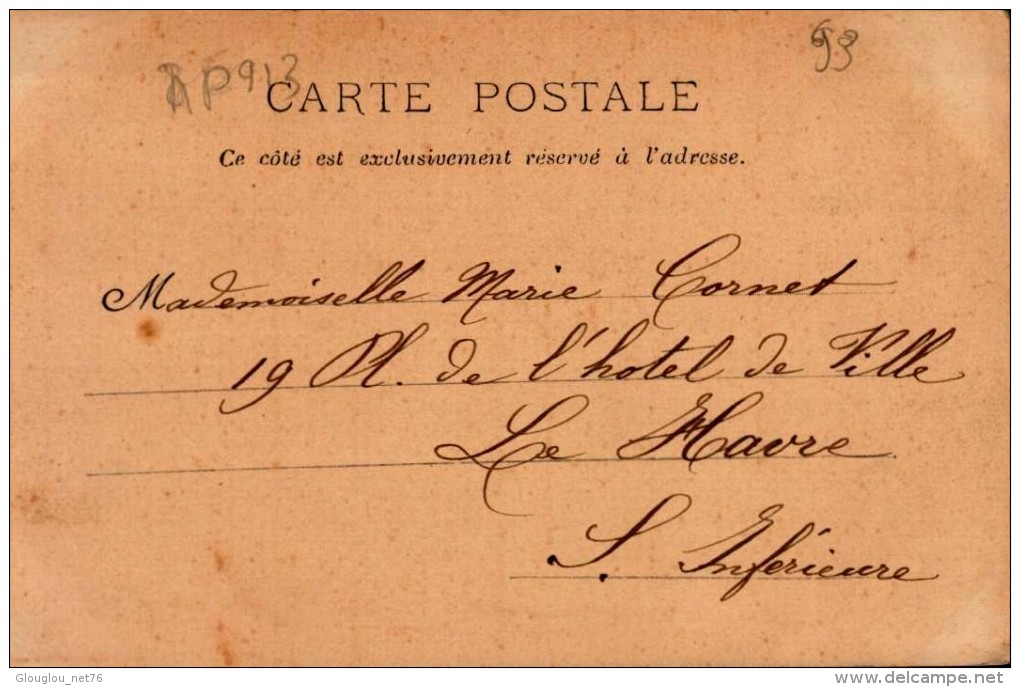 93
AP913
CARTE POSTALE
Ce côté est exclusivement réservé à l'adresse.
Mademoiselle Marie Cornet
19 Pl. de l'hotel de Ville
Le Havre
S. Inférieure
Glouglou_net76
delcampe.net